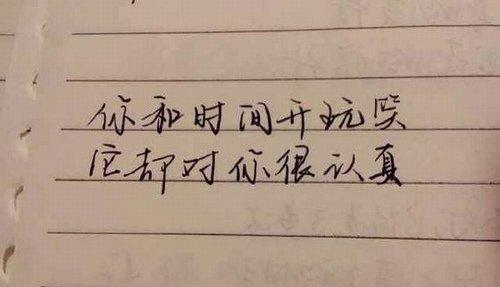 你和时间开玩笑
它却对你很认真